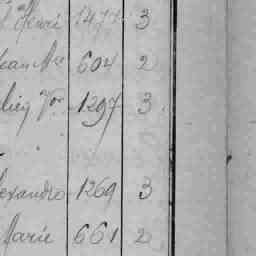 Henri 1477 3
Jean Mce 604 2
Vor 1297 3
exandro 1269 3
Marie 661 2